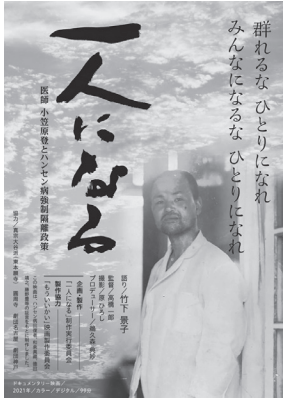 群れるな ひとりになれ
みんなになるな ひとりになれ
一人になる
医師 小笠原登とハンセン病強制隔離政策
語り/竹下景子
監督/高橋一郎
撮影/原ひろし
プロデューサー/鵜久森典妙
企画・製作
「一人になる」制作実行委員会
製作協力
「もういいかい」映画製作委員会
ドキュメンタリー映画/
2021年/カラー/デジタル/99分